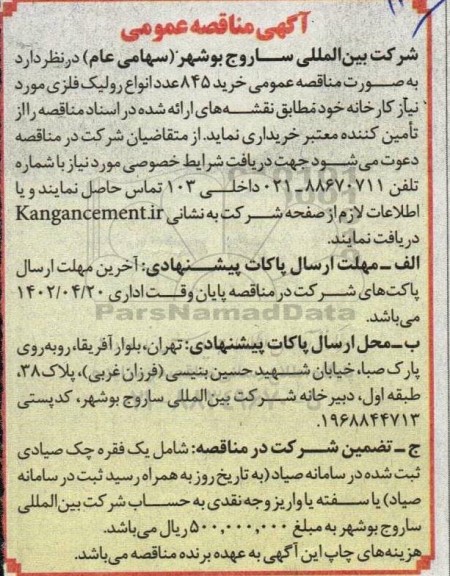 آگهی مناقصه عمومی
شرکت بین‌المللی ساروج بوشهر (سهامی عام) در نظر دارد
به صورت مناقصه عمومی خرید ۸۴۵ عدد انواع رولیک فلزی مورد
نیاز کارخانه خود مطابق نقشه‌های ارائه شده در اسناد مناقصه را از
تأمین کننده معتبر خریداری نماید. از متقاضیان شرکت در مناقصه
دعوت می‌شود جهت دریافت شرایط خصوصی مورد نیاز با شماره
تلفن ۸۸۶۷۰۷۱۱ـ۰۲۱ داخلی ۱۰۳ تماس حاصل نمایند و یا
اطلاعات لازم از صفحه شرکت به نشانی Kangancement.ir
دریافت نمایند.
الف ـ مهلت ارسال پاکات پیشنهادی: آخرین مهلت ارسال
پاکت‌های شرکت در مناقصه پایان وقت اداری ۱۴۰۲/۰۴/۲۰
می‌باشد.
ParsNamadData
ب ـ محل ارسال پاکات پیشنهادی: تهران، بلوار آفریقا، روبه‌روی
پارک صبا، خیابان شهید حسین بنیسی (فرزان غربی)، پلاک ۳۸،
طبقه اول، دبیرخانه شرکت بین المللی ساروج بوشهر، کدپستی
۱۹۶۸۸۴۴۷۱۳.
ج ـ تضمین شرکت در مناقصه: شامل یک فقره چک صیادی
ثبت شده در سامانه صیاد (به تاریخ روز به همراه رسید ثبت در سامانه
صیاد) یا سفته یا واریز وجه نقدی به حساب شرکت بین‌المللی
ساروج بوشهر به مبلغ ۵۰۰,۰۰۰,۰۰۰ ریال می‌باشد.
هزینه‌های چاپ این آگهی به عهده برنده مناقصه می‌باشد.